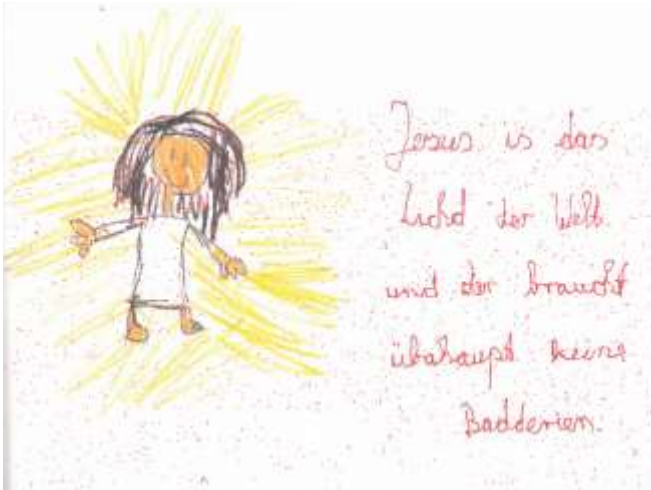 Jesus is das
Lichd der Welt
und der braucht
übahaupt keine
Badderien.